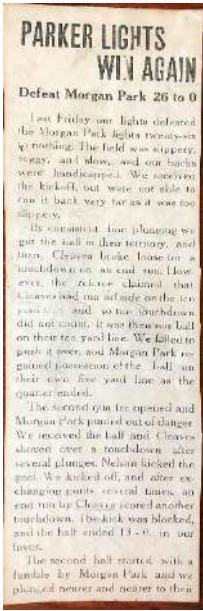 PARKER LIGHTS
WIN AGAIN
Defeat Morgan Park 26 to 0
Last Friday our lights defeated
the Morgan Park lights twenty-six
to nothing. The field was slippery,
soggy, and slow, and our backs
were handicapped. We received
the kickoff, but were not able to
run it back very far as it was too
slippery.
By consistent line plunging we
got the ball in their territory, and
then, Cleaves broke loose for a
touchdown on an end run. How-
ever, the referee claimed that
Cleaves had run outside on the ten
yard and so this touchdown
did not count, it was then our ball
on their ten yard line. We failed to
push it over, and Morgan Park re-
gained possession of the ball on
their own five yard line as the
quarter ended.
The second quarter opened and
Morgan Park punted out of danger.
We received the ball and Cleaves
shoved over a touchdown after
several plunges. Nelson kicked the
goal. We kicked off, and after ex-
changing punts several times, an
end run by Cleaves scored another
touchdown. The kick was blocked,
and the half ended 13 - 0, in our
favor.
The second half started with a
fumble by Morgan Park and we
plunged nearer and nearer to their